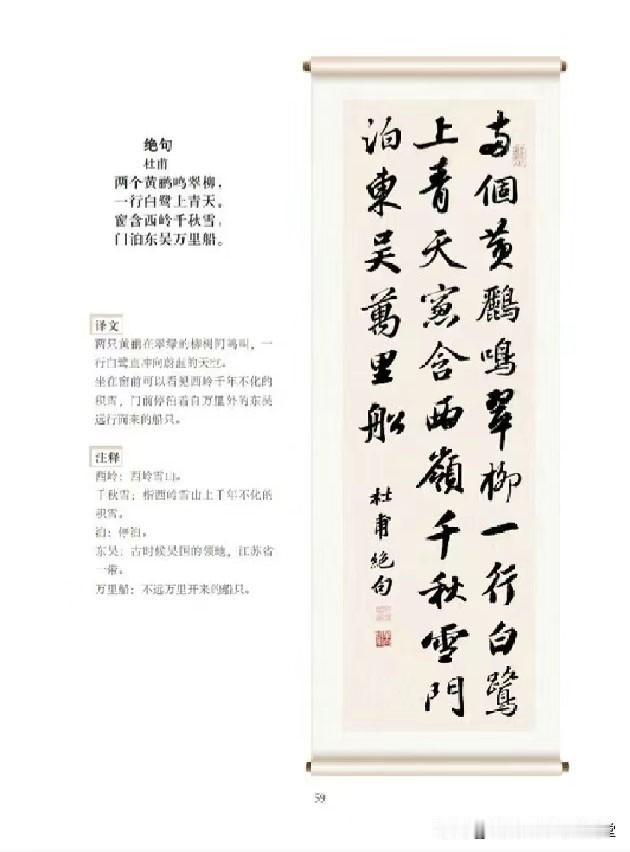 绝句
杜甫
两个黄鹂鸣翠柳，
一行白鹭上青天。
窗含西岭千秋雪，
门泊东吴万里船。
译文
两只黄鹂在翠绿的柳树间鸣叫，一
行白鹭直冲向蔚蓝的天空。
坐在窗前可以看见西岭千年不化的
积雪，门前停泊着自万里外的东吴
远行而来的船只。
注释
西岭：西岭雪山。
千秋雪：指西岭雪山上千年不化的
积雪。
泊：停泊。
东吴：古时候吴国的领地，江苏省
一带。
万里船：不远万里开来的船只。
两個黄鸝鳴翠柳一行白鷺
上青天窓含西嶺千秋雪門
泊東吴萬里船
杜甫絶句
59